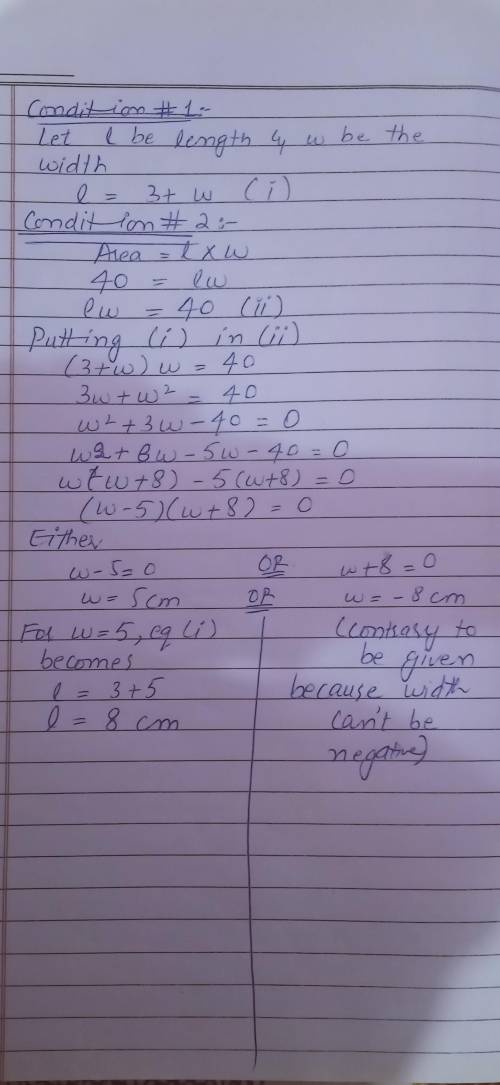 Condition # 1:-
Let l be length & w be the
width
l = 3+ w (i)
Condition # 2:-
Area = l x w
40 = lw
lw = 40 (ii)
Putting (i) in (ii)
(3+w) w = 40
3w + w² = 40
w² + 3w - 40 = 0
w2 + 8w - 5w - 40 = 0
w (w+8) - 5 (w+8) = 0
(w-5) (w+8) = 0
Either
w-5=0 OR w+8=0
w = 5cm OR w = -8 cm
For w=5, eq (i) (contrary to
becomes be given
l = 3+5 because width
l = 8 cm can't be
negative)